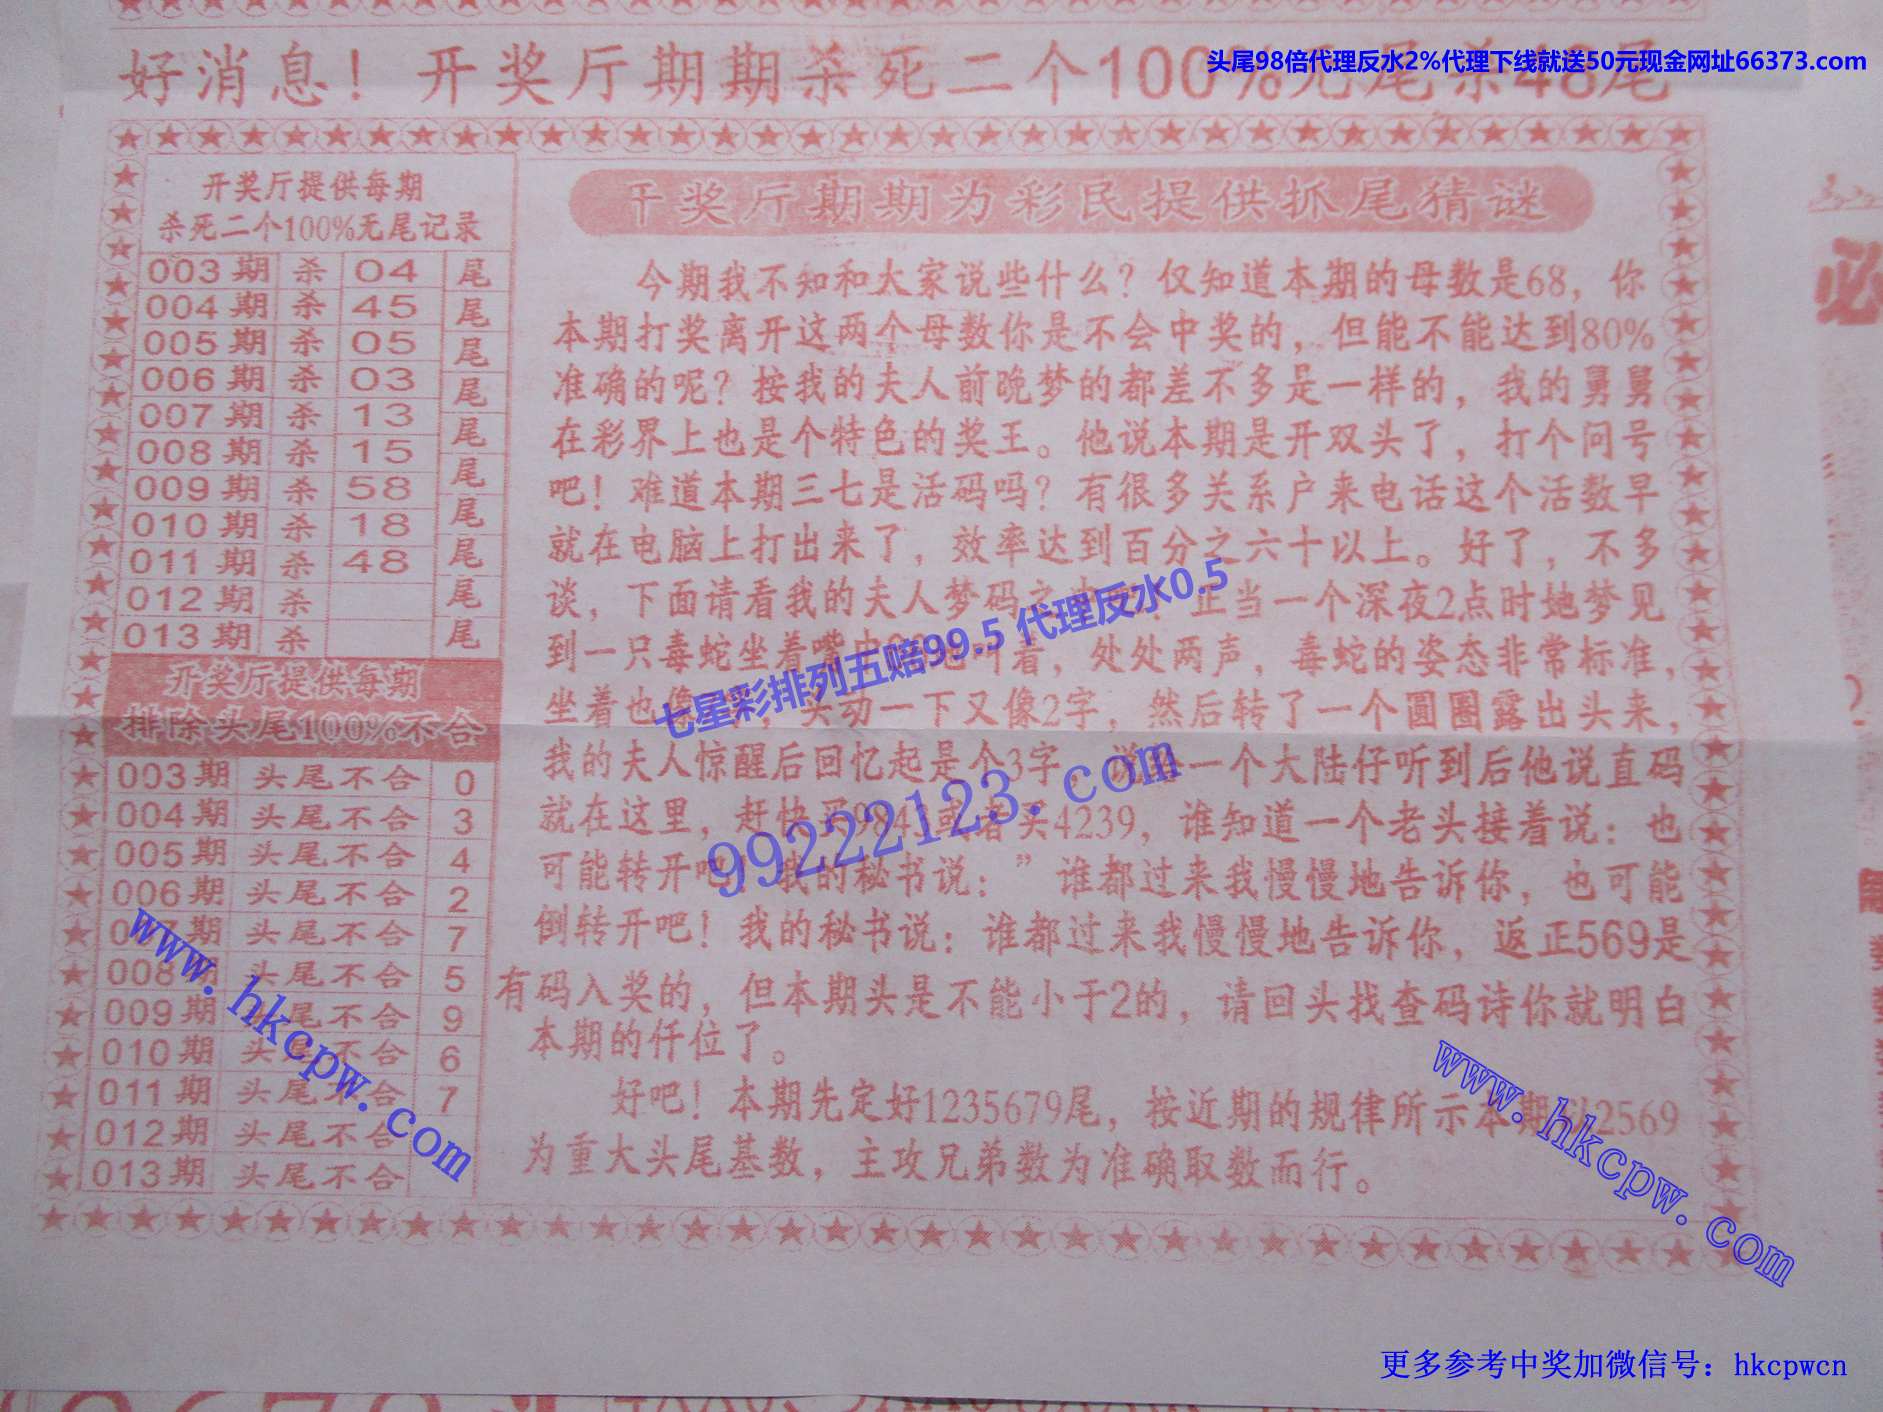 好消息！开奖厅期期杀死二个100%无尾杀48尾
头尾98倍代理反水2%代理下线就送50元现金网址66373.com
开奖厅提供每期
杀死二个100%无尾记录
003期 杀 04 尾
004期 杀 45 尾
005期 杀 05 尾
006期 杀 03 尾
007期 杀 13 尾
008期 杀 15 尾
009期 杀 58 尾
010期 杀 18 尾
011期 杀 48 尾
012期 杀 尾
013期 杀 尾
开奖厅提供每期
排除头尾100%不合
003期 头尾不合 0
004期 头尾不合 3
005期 头尾不合 4
006期 头尾不合 2
007期 头尾不合 7
008期 头尾不合 5
009期 头尾不合 9
010期 头尾不合 6
011期 头尾不合 7
012期 头尾不合
013期 头尾不合
开奖厅期期为彩民提供抓尾猜谜
今期我不知和大家说些什么？仅知道本期的母数是68，你
本期打奖离开这两个母数你是不会中奖的，但能不能达到80%
准确的呢？按我的夫人前晚梦的都差不多是一样的，我的舅舅
在彩界上也是个特色的奖王。他说本期是开双头了，打个问号
吧！难道本期三七是活码吗？有很多关系户来电话这个活数早
就在电脑上打出来了，效率达到百分之六十以上。好了，不多
谈，下面请看我的夫人梦码 正当一个深夜2点时她梦见
到一只毒蛇坐着嘴 叫着，处处两声，毒蛇的姿态非常标准，
坐着也像 动一下又像2字，然后转了一个圆圈露出头来，
我的夫人惊醒后回忆起是个3字，说 一个大陆仔听到后他说直码
就在这里，赶快买9843或者买4239，谁知道一个老头接着说：也
可能转开吧！我的秘书说：”谁都过来我慢慢地告诉你，也可能
倒转开吧！我的秘书说：谁都过来我慢慢地告诉你，返正569是
有码入奖的，但本期头是不能小于2的，请回头找查码诗你就明白
本期的仟位了。
好吧！本期先定好1235679尾，按近期的规律所示本期 2569
为重大头尾基数，主攻兄弟数为准确取数而行。
七星彩排列五赔99.5 代理反水0.5
99222123.com
www.hkcpw.com
www.hkcpw.com
必
更多参考中奖加微信号：hkcpwcn